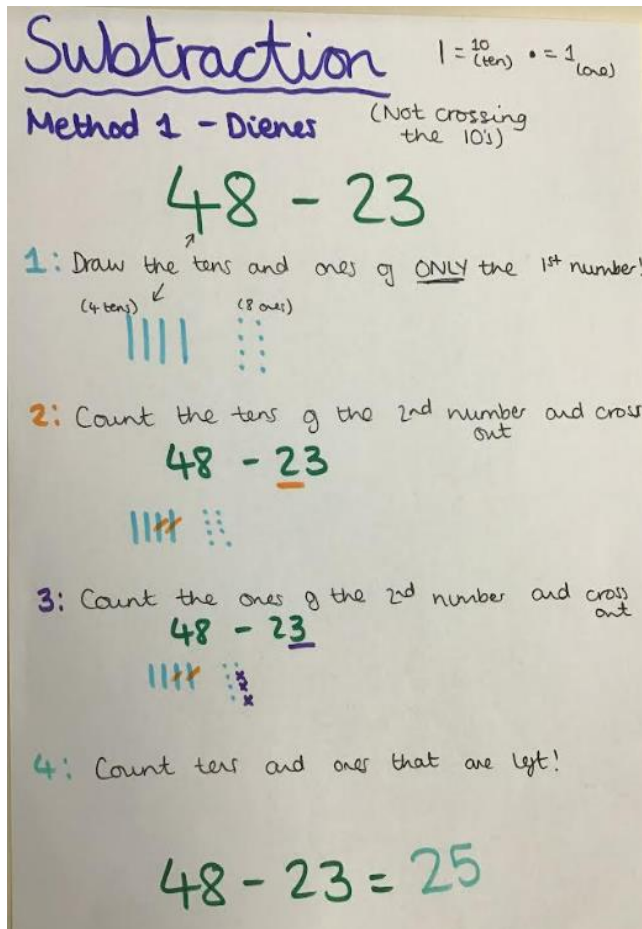 Subtraction
| = 10 (ten) • = 1 (one)
Method 1 - Dienes
(Not crossing
the 10's)
48 - 23
1: Draw the tens and ones of ONLY the 1st number!
(4 tens) (8 ones)
2: Count the tens of the 2nd number and cross
out
48 - 23
3: Count the ones of the 2nd number and cross
out
48 - 23
4: Count tens and ones that are left!
48 - 23 = 25